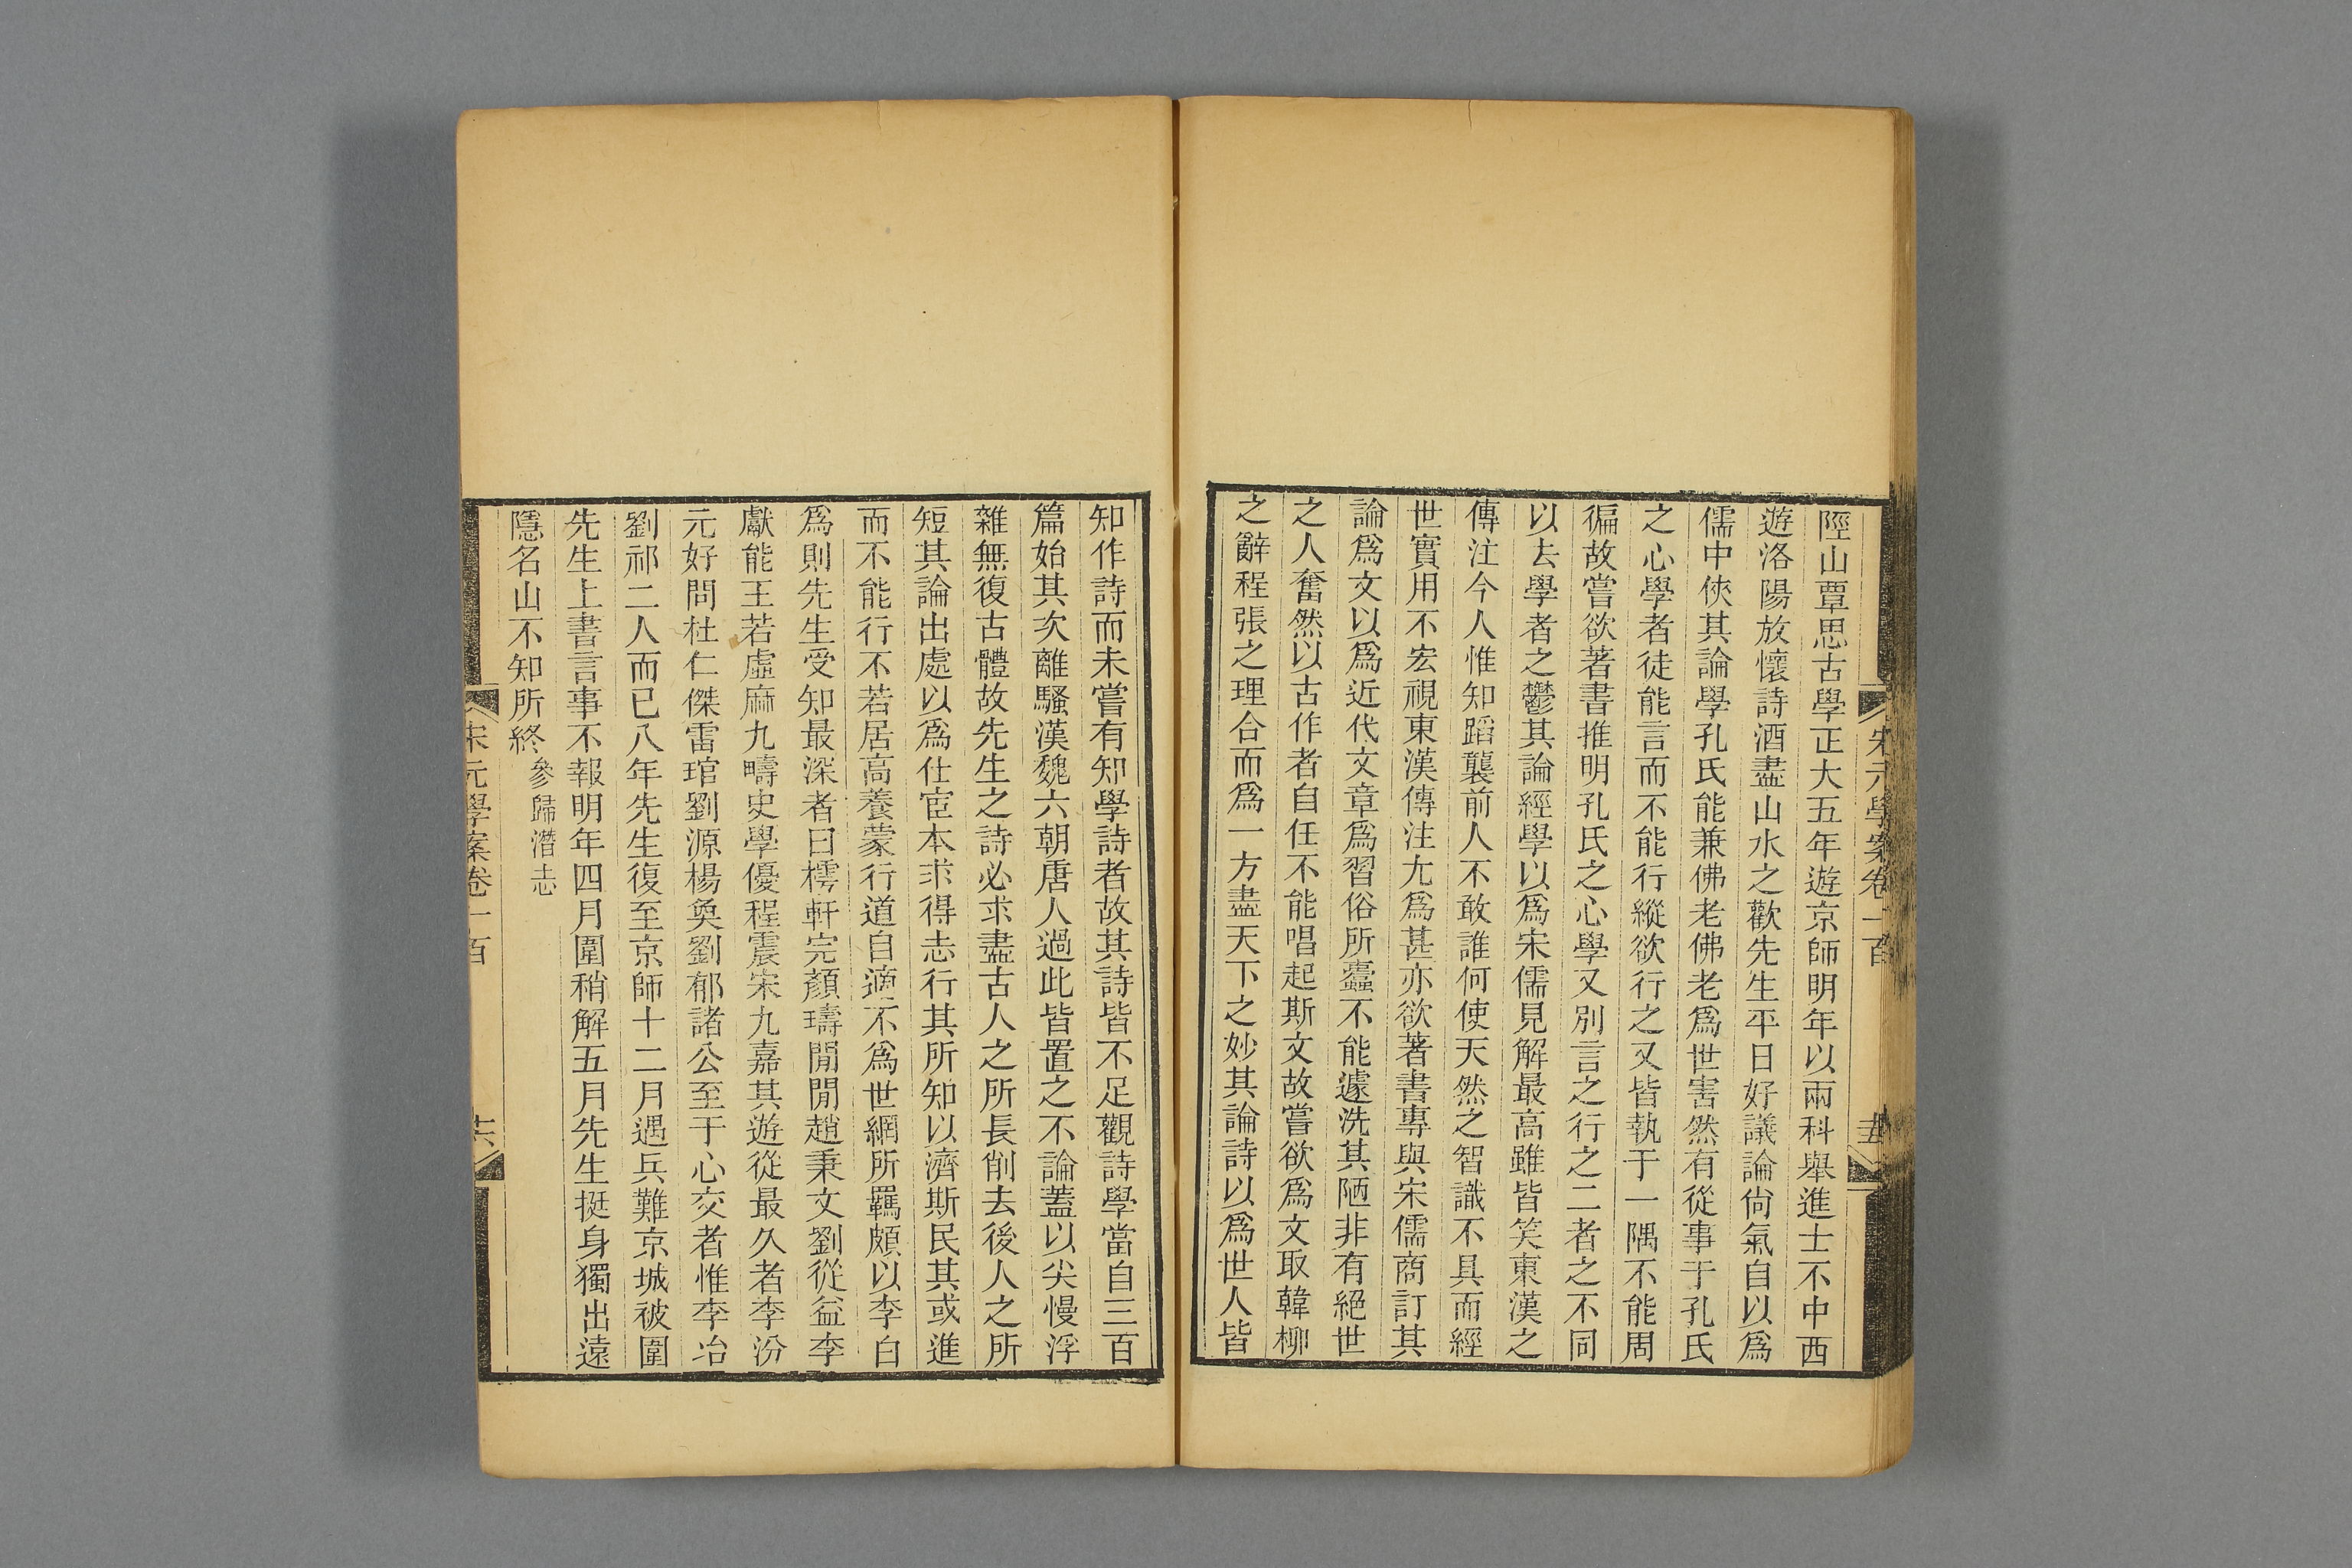 宋元學案卷一百
陘山覃思古學正大五年遊京師明年以兩科舉進士不中西
遊洛陽放懷詩酒盡山水之歡先生平日好議論尙氣自以爲
儒中俠其論學孔氏能兼佛老佛老爲世害然有從事于孔氏
之心學者徒能言而不能行縱欲行之又皆執于一隅不能周
徧故嘗欲著書推明孔氏之心學又別言之行之二者之不同
以去學者之鬱其論經學以爲宋儒見解最高雖皆笑東漢之
傳注今人惟知蹈襲前人不敢誰何使天然之智識不具而經
世實用不宏視東漢傳注尤爲甚亦欲著書專與宋儒商訂其
論爲文以爲近代文章爲習俗所蠹不能遽洗其陋非有絕世
之人奮然以古作者自任不能唱起斯文故嘗欲爲文取韓柳
之辭程張之理合而爲一方盡天下之妙其論詩以爲世人皆
知作詩而未嘗有知學詩者故其詩皆不足觀詩學當自三百
篇始其次離騷漢魏六朝唐人過此皆置之不論蓋以尖慢浮
雜無復古體故先生之詩必求盡古人之所長削去後人之所
短其論出處以爲仕宦本求得志行其所知以濟斯民其或進
而不能行不若居高養蒙行道自適不爲世網所羈頗以李白
爲則先生受知最深者曰樗軒完顏璹閒閒趙秉文劉從益李
獻能王若虛麻九疇史學優程震宋九嘉其遊從最久者李汾
元好問杜仁傑雷琯劉源楊奐劉郁諸公至于心交者惟李冶
劉祁二人而已八年先生復至京師十二月遇兵難京城被圍
先生上書言事不報明年四月圍稍解五月先生挺身獨出遠
隱名山不知所終參歸潛志
宋元學案卷一百
十六